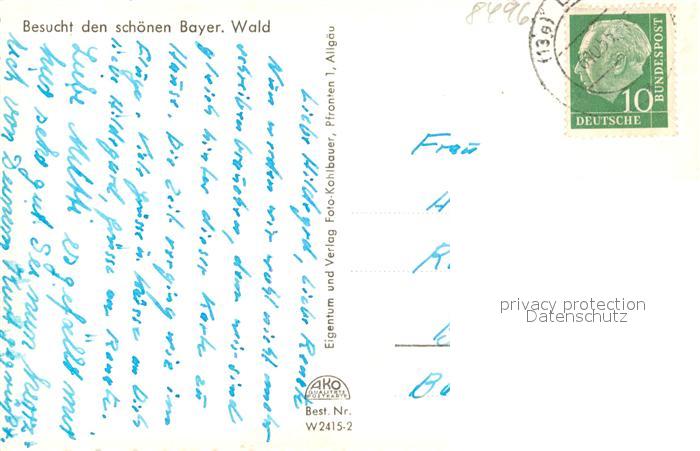 Besucht den schönen Bayer. Wald
8496
(13a)
DEUTSCHE
BUNDESPOST
10
Liebe Hildegard, liebe Renate
Nun werden wir wohl nicht mehr
schreiben brauchen, denn wir sind
gleich hinter dieser Karte zu
Hause. Die Zeit verging wie im
Fluge. Viele Grüsse u. Küsse an Dich
liebe Hildegard, Grüsse an Renate.
Liebe Mutti es gefällt mir
hier sehr gut. Sei nun herz-
lich von Deinem
Eigentum und Verlag Foto-Kohlbauer, Pfronten 1, Allgäu
AKO
QUALITÄTS
POSTKARTE
Best. Nr.
W 2415-2
Frau
H
K
Ba
privacy protection
Datenschutz